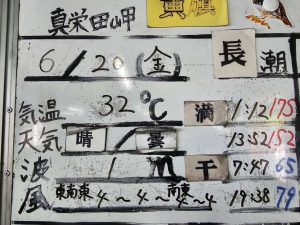 真栄田岬 黄旗
6/20(金) 長潮
気温 32℃ 満 1:12 175
天気 晴/曇 13:52 152
波 1m 干 7:47 65
風 東南東4~4~南東4~4 19:38 79